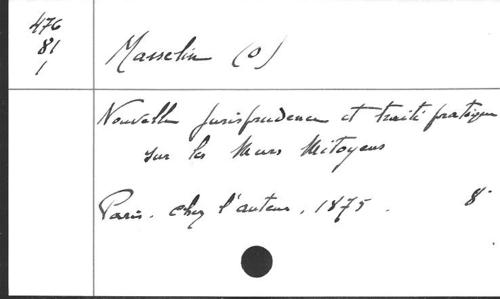 476
81
1
Masselin (O)
Nouvelle jurisprudence et traité pratique
sur les Murs Mitoyens
Paris. chez l'auteur, 1875. 8°